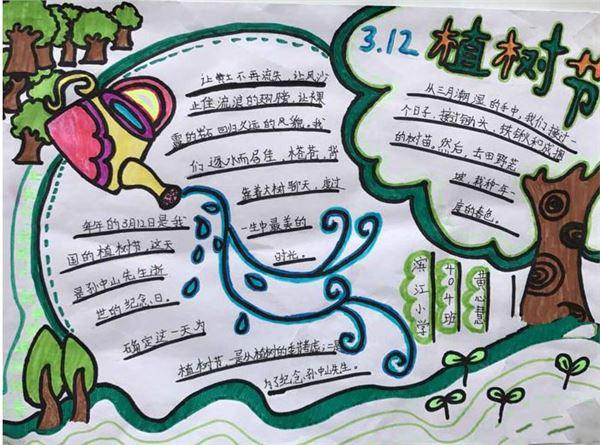 3.12 植树节
从三月潮湿的手中，我们接过一
个日子，接过锄头、铁锹和茂摇
的树苗，然后，去田野荒
坡，栽种一年一
度的春色。
让黄土不再流失，让风沙
止住流浪的翅膀，让裸
露的岩石回归久远的风貌，我
们逐水而居住，搭苔，背
靠着大树聊天，度过
一生中最美的
时光。
每年的3月12日是我
国的植树节，这天
是孙中山先生逝
世的纪念日。
确定这一天为
植树节，一是从植树的季节考虑；二是
为了纪念孙中山先生。
滨江小学
404班
黄心慧